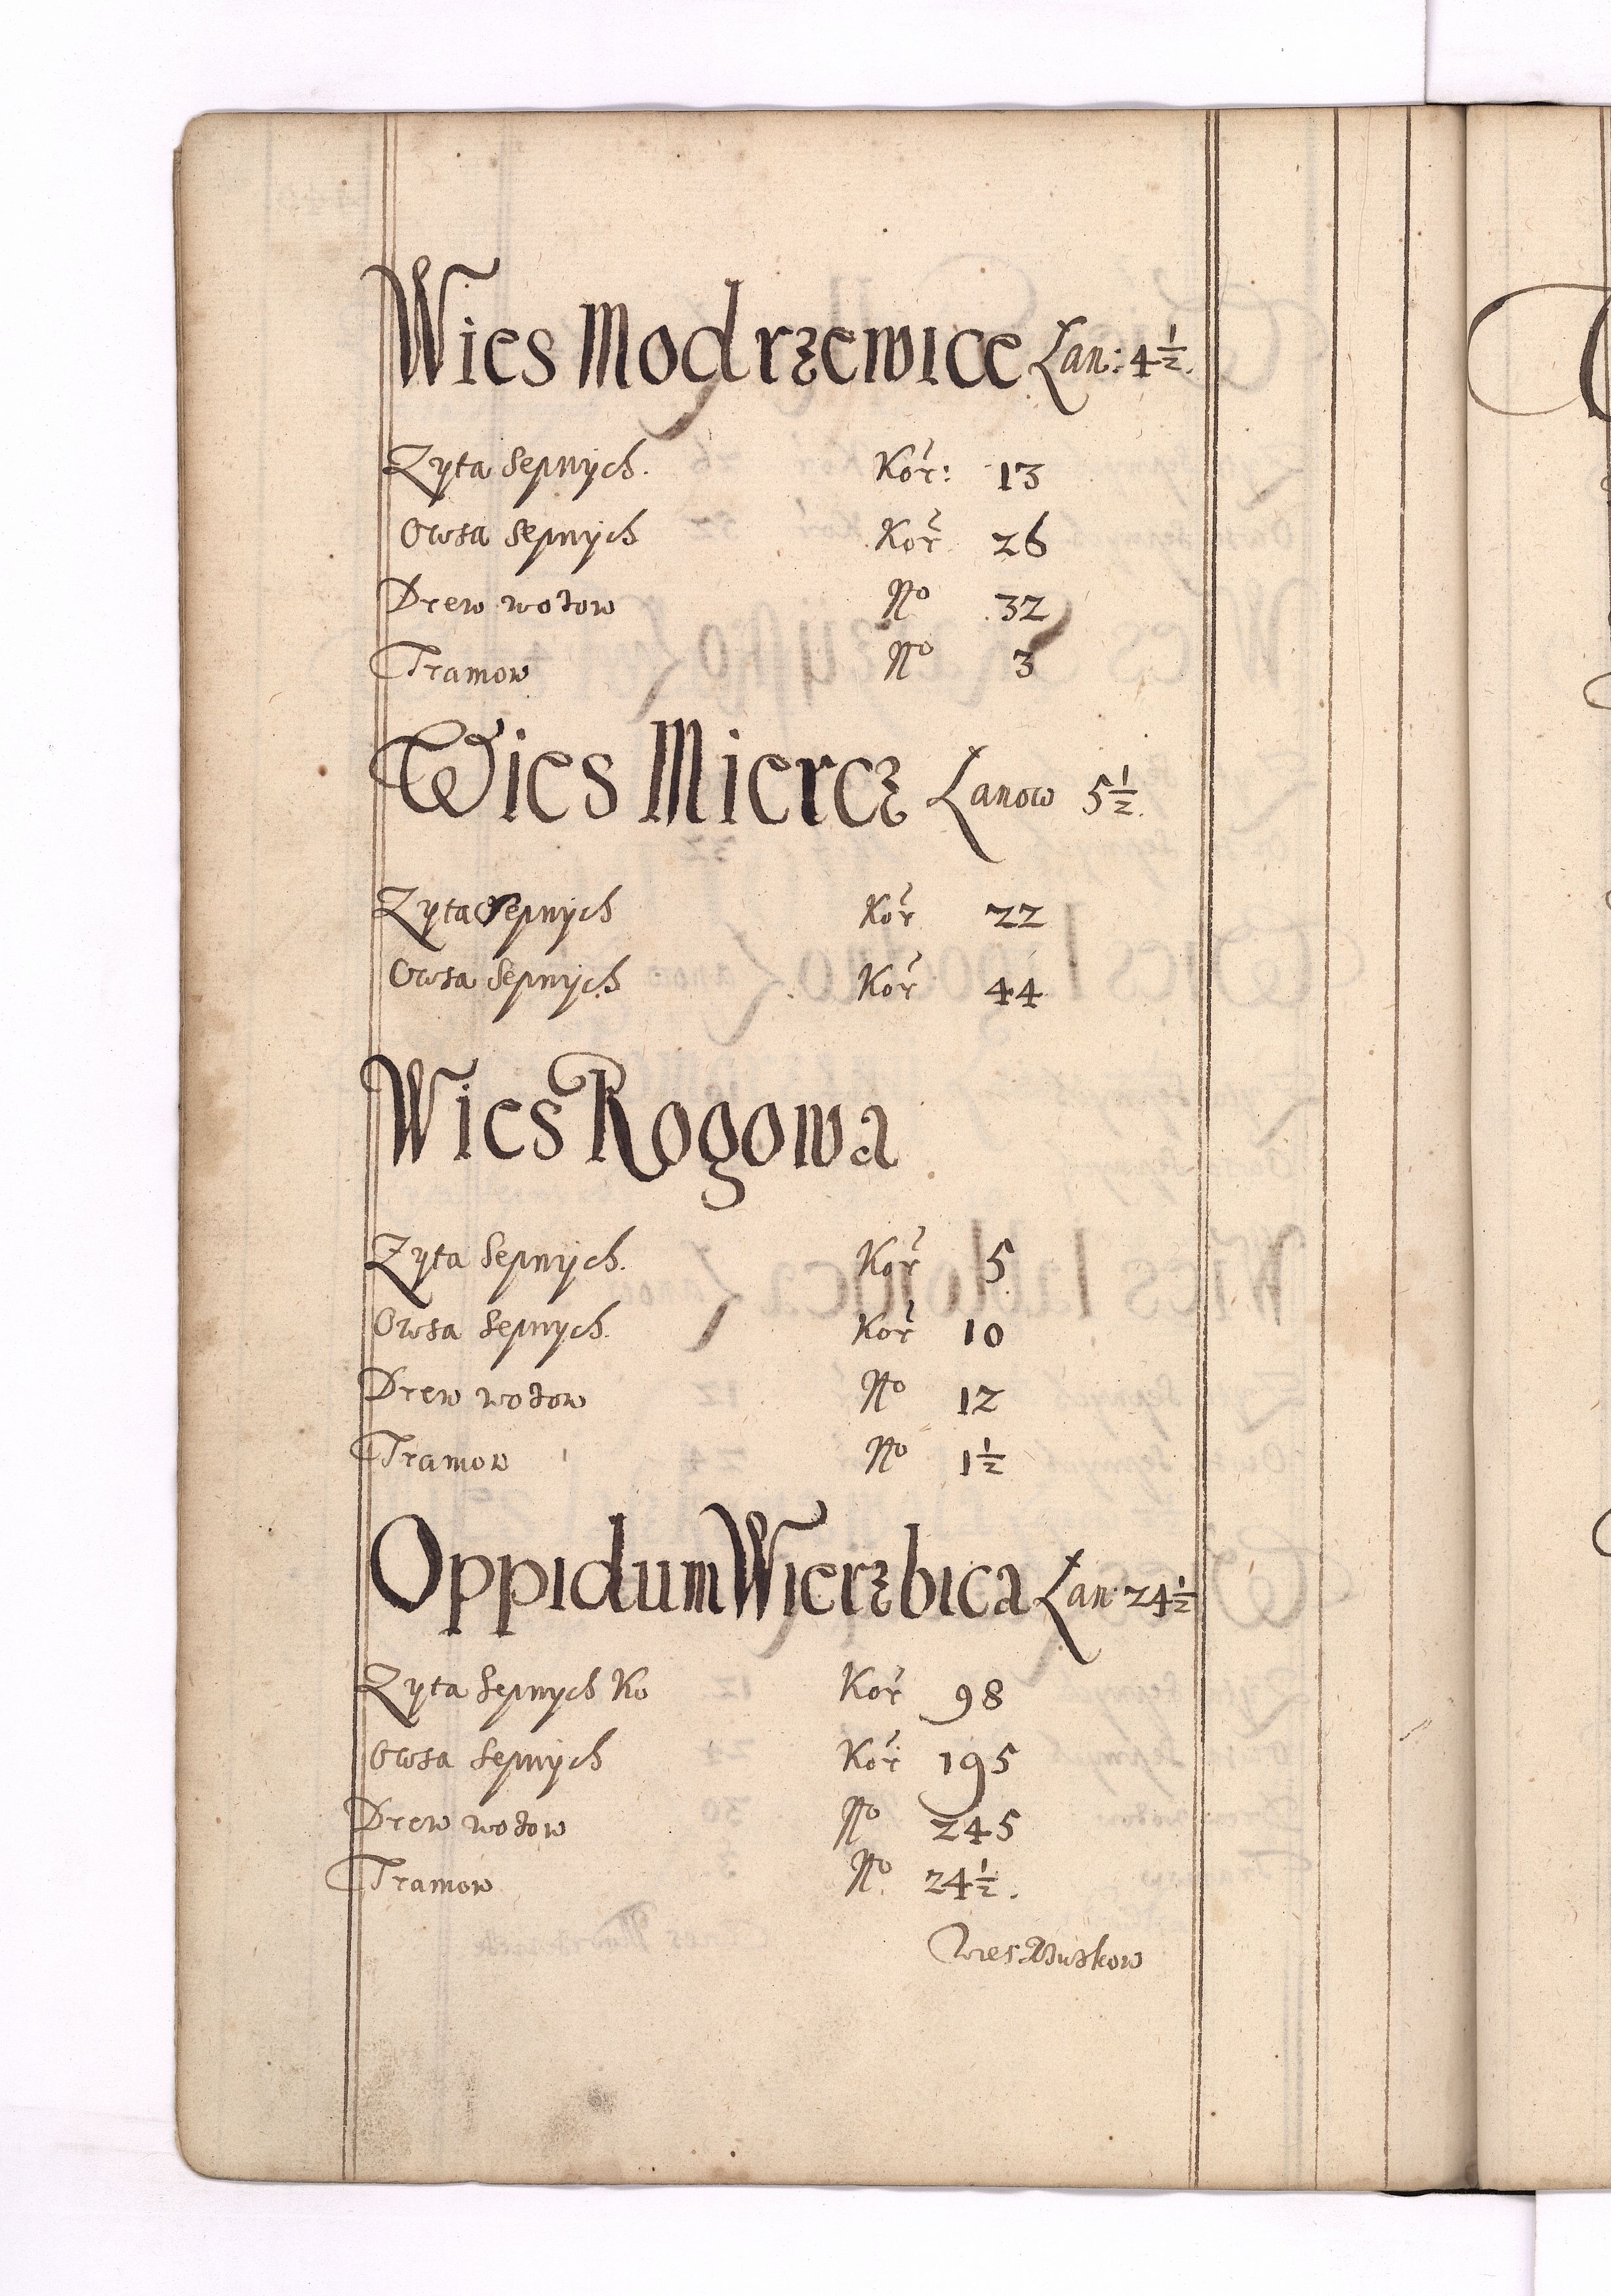 Wies Modrzewice Lan: 4 1/2.
Zyta Sepnych. Kor: 13
Owsa Sepnych Kor 26
Drew wozow No 32
Tramow No 3
Wies Miercz Lanow 5 1/2.
Zyta Sepnych Kor 22
Owsa Sepnych Kor 44
Wies Rogowa
Zyta Sepnych. Kor 5
Owsa Sepnych. Kor 10
Drew wozow No 12
Tramow No 1 1/2
Oppidum Wierzbica Lan 24 1/2
Zyta Sepnych Ko Kor 98
Owsa Sepnych Kor 195
Drew wozow No 245
Tramow No 24 1/2.
Wies